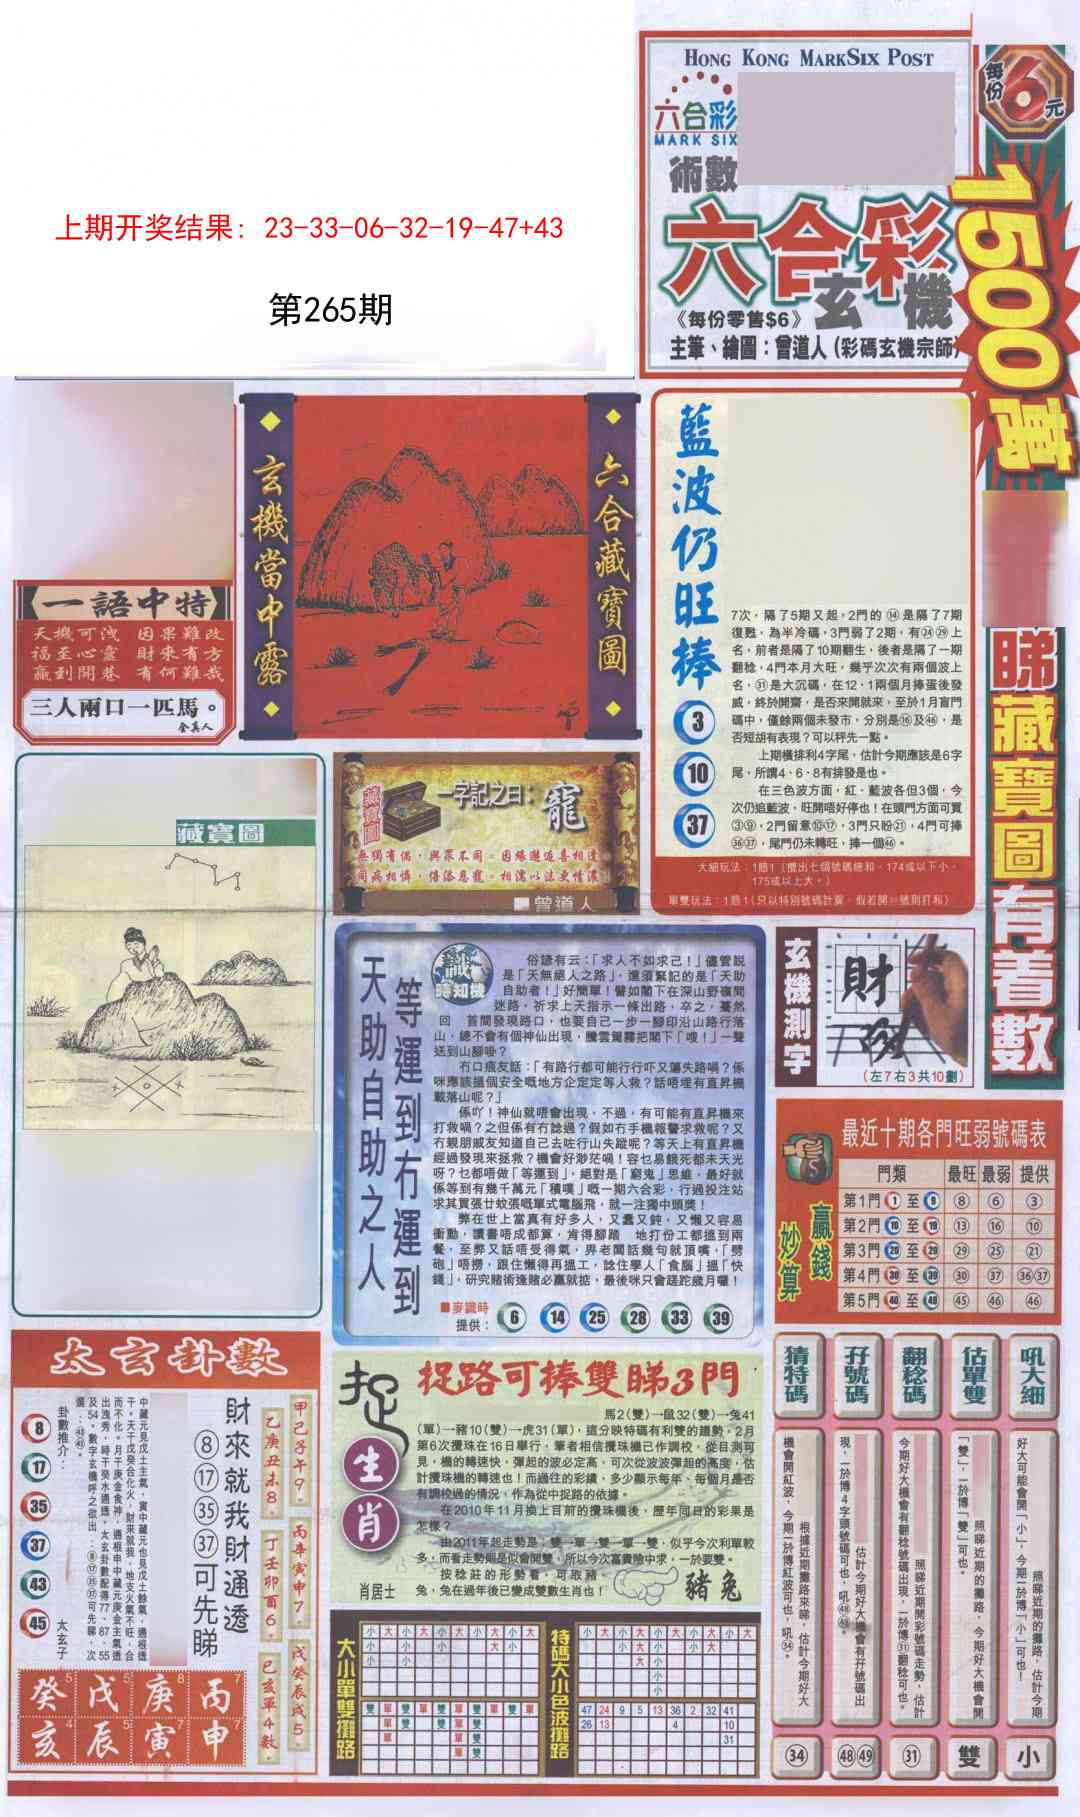 HONG KONG MARKSIX POST
六合彩
MARK SIX
術數
六合彩
玄機
《每份零售$6》
主筆、繪圖：曾道人(彩碼玄機宗師)
每份6元
1500萬
睇藏寶圖有着數
上期开奖结果：23-33-06-32-19-47+43
第265期
一語中特
天機可洩 因果難改
福至心靈 財來有方
贏到開巷 有何難哉
三人兩口一匹馬。
玄機當中露
六合藏寶圖
藍波仍旺捧
3
10
37
7次，隔了5期又起，2門的⑭是隔了7期
復甦，為半冷碼，3門弱了2期，有㉔㉙上
名，前者是隔了10期翻生，後者是隔了一期
翻稔，4門本月大旺，幾乎次次有兩個波上
名，㉛是大沉碼，在12、1兩個月捧蛋後發
威，終於開齋，是否來開就來，至於1月盲門
碼中，僅餘兩個未發市，分別是⑯及㊻，是
否短胡有表現？可以秤先一點。
上期橫排利4字尾，估計今期應該是6字
尾，所謂4、6、8有排發是也。
在三色波方面，紅、藍波各佀3個，今
次仍追藍波，旺開唔好停也！在頭門方面可買
③⑨，2門留意⑩⑰，3門只盼㉑，4門可捧
㊱㊲，尾門仍未轉旺，捧一個㊻。
大細玩法：1賠1（攪出七個號碼總和，174或以下小，
175或以上大。）
單雙玩法：1賠1(只以特別號碼計算，假若開49號則打和)
藏寶圖
一字記之曰：龍
無獨有偶，與眾不同。因緣邂逅喜相逢
同病相憐，倍添恩寵。相濡以沫更情濃
曾道人
等運到冇運到
天助自助之人
識時知機
俗諺有云：「求人不如求己！」儘管説
是「天無絕人之路」，還須緊記的是「天助
自助者！」好簡單！譬如閣下在深山野嶺間
迷路，祈求上天指示一條出路，卒之，驀然
回 首間發現路口，也要自己一步一腳印沿山路行落
山，總不會有個神仙出現，騰雲駕霧把閣下「嗖！」一聲
送到山腳啩？
冇口痕友話：「有路行都可能行行吓又蕩失路喎？係
咪應該搵個安全嘅地方企定定等人救？話唔埋有直昇機
載落山呢？」
係吖！神仙就唔會出現，不過，有可能有直昇機來
打救喎？之但係有冇諗過？假如冇手機報警求救呢？又
冇親朋戚友知道自己去咗行山失蹤呢？等天上有直昇機
經過發現來拯救？機會好渺茫喎！容乜易餓死都未天光
呀？乜都唔做「等運到」，絕對是「窮鬼」思維，最好就
係等到有幾千萬元「積噗」嘅一期六合彩，行過投注站
求其買張廿蚊張嘅單式電腦飛，就一注獨中頭獎！
弊在世上當真有好多人，又蠢又鈍，又懶又容易
衝動，讀書唔成都算，肯得腳踏 地打份工都搵到兩
餐，至弊又話唔受得氣，畀老闆話幾句就頂嘴，「劈
砲」唔撈，跟住懶得再搵工，諗住學人「食腦」搵「快
錢」，研究賭術逢賭必贏就掂，最後咪只會蹉跎歲月囉！
■麥識時
提供： 6 14 25 28 33 39
玄機測字
財
(左7右3共10劃)
最近十期各門旺弱號碼表
贏錢
妙算
門類 最旺 最弱 提供
第1門 1 至 9 ⑧ ⑥ ③
第2門 10 至 19 ⑬ ⑯ ⑩
第3門 20 至 29 ㉙ ㉕ ㉑
第4門 30 至 39 ㉚ ㊲ ㊱㊲
第5門 40 至 49 ㊺ ㊻ ㊻
太玄卦數
財來就我財通透
⑧⑰㉟㊲可先睇
甲己子午9。
乙庚丑未8。
丙辛寅申7。
丁壬卯酉6。
戊癸辰戌5。
巳亥單4數。
卦數推介：
8
17
35
37
43
45
太玄子
癸 戊 庚 丙
亥 辰 寅 申
捉生肖
捉路可捧雙睇3門
馬2(雙)→鼠32(雙)→兔41
(單)→豬10(雙)→虎31(單)，這分映特碼有利雙的趨勢，2月
第6次攪珠在16日舉行，筆者相信攪珠機已作調校，從目測可
見，機的轉速快，彈起的波必定高，可次從波波彈超的高度，估
計攪珠機的轉速也！而過往的彩績，多少顯示每年、每個月是否
有調校過的情況，作為從中捉路的依據。
在2010年11月換上目前的攪珠機後，歷年同日的彩果是
怎樣？
由2011年起走勢是：雙→單→雙→單→雙，似乎今次利單較
多，而看走勢則是似會開雙，所以今次富貴險中求，一於要雙。
按稔莊的形勢看，可取豬、
兔，兔在過年後已變成雙數生肖也！
肖居士
豬兔
大小單雙攤路
特碼大小色波攤路
47 24 9 5 13 36 2 32 41
26 13 4 10
31
猜特碼
根據近期攤路來睇，估計今期好大
機會開紅波，今期一於博紅波可也，吼㉞。
㉞
孖號碼
估計今期好大機會有孖號碼出
現，一於博4字頭號碼可也，吼㊽㊾。
㊽㊾
翻稔碼
照睇近期開彩號碼走勢，估計
今期好大機會有翻稔號碼出現，一於博㉛翻稔可也。
㉛
估單雙
照睇近期的攤路，今期好大機會開
「雙」，一於博「雙」可也。
雙
吼大細
照睇近期的攤路，估計今期
好大可能會開「小」，今期一於博「小」可也！
小